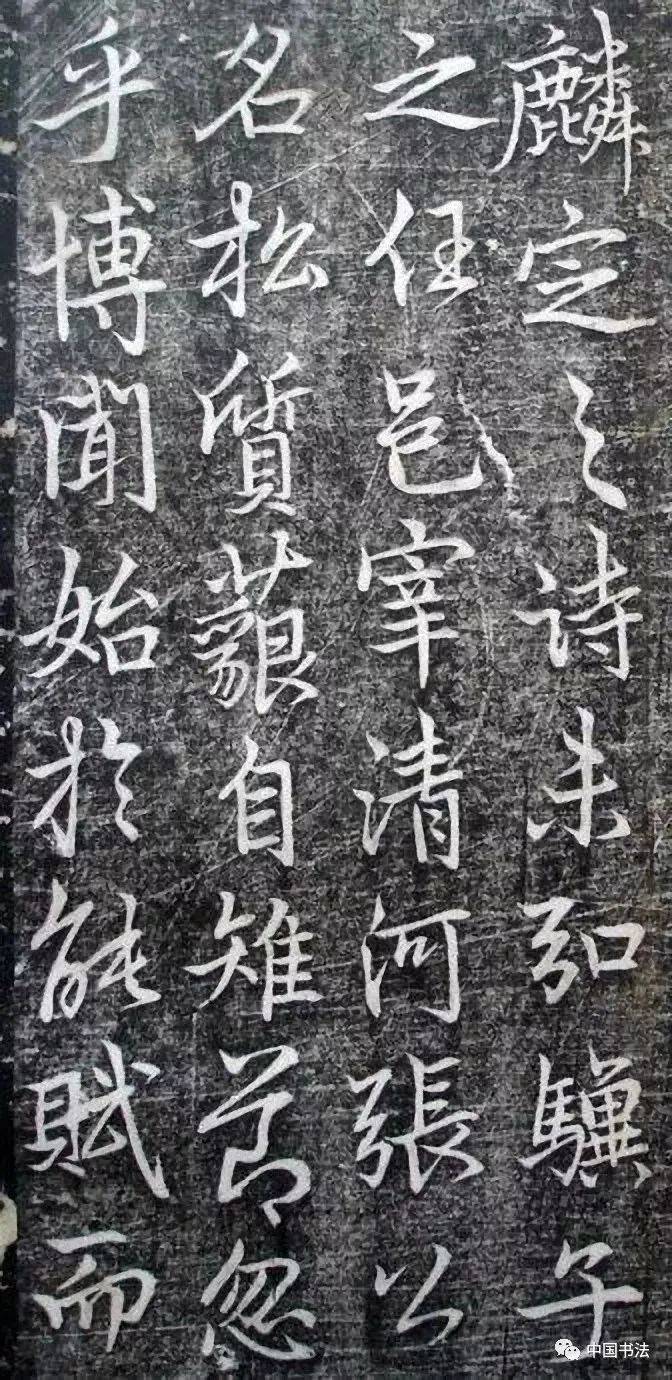 麟定之詩未弘驥子
之任邑宰清河張公
名松質藐自雉莭忽
乎博聞始於能賦而
中国书法